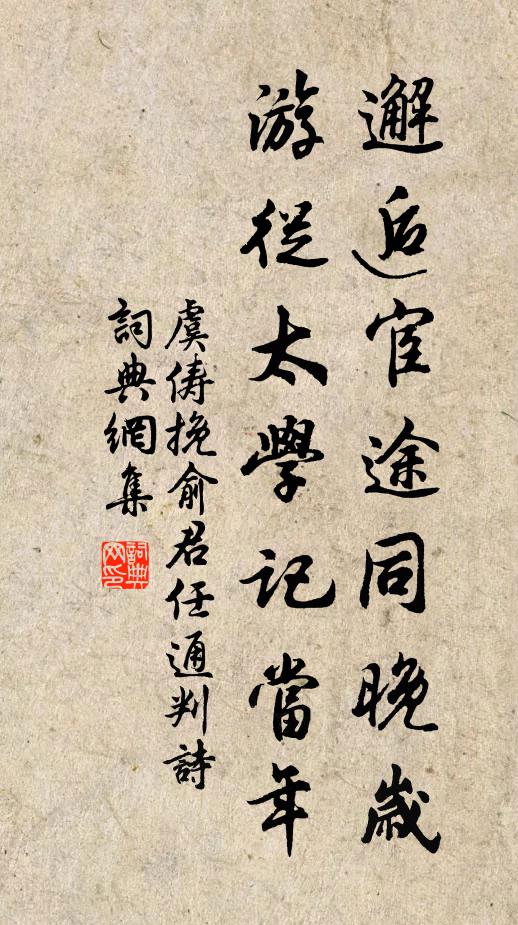 邂逅宦途同晚歲
游從太學記當年
虞儔挽俞君任通判詩
詞典網集
詞典网印